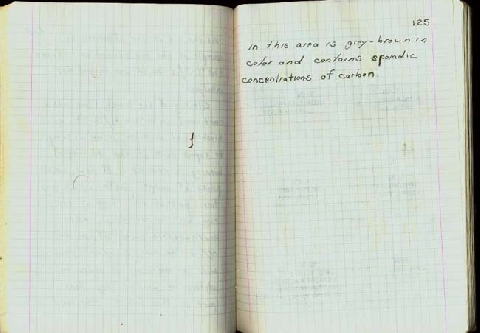 125
in this area is grey-brown in
color and contains sporadic
concentrations of carbon.